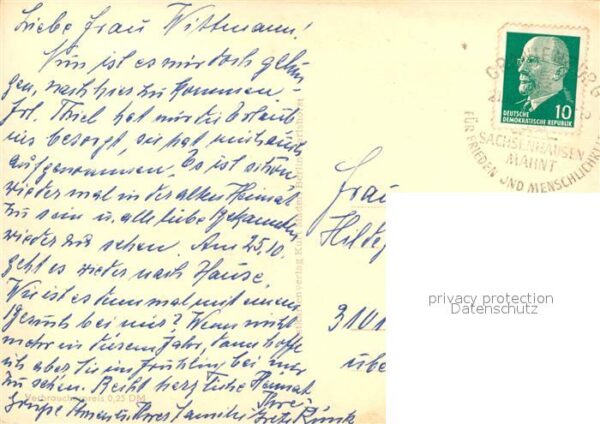 Liebe Frau Wittmann!
Nun ist es mir doch gelun
gen, nach hier zu kommen –
Frl. Thiel hat mir die Erlaub
nis besorgt, sie hat mich auch
aufgenommen. Es ist schön
wieder mal in der alten Heimat
zu sein u. alle liebe Bekannten
wieder zu sehen. Am 25.10.
geht es wieder nach Hause.
Wie ist es denn mal mit einem
Besuch bei mir? Wenn nicht
mehr in diesem Jahr, dann hoffe
ich aber Sie im Frühling bei mir
zu sehen. Recht herzliche Heimat
grüße Ihnen u. Ihrer Familie Ihre
Verbraucherpreis 0,25 DM
Frau
Hildeg
3101
übe
DEUTSCHE
DEMOKRATISCHE REPUBLIK
10
SACHSENHAUSEN
MAHNT
FÜR FRIEDEN UND MENSCHLICHKEIT
privacy protection
Datenschutz